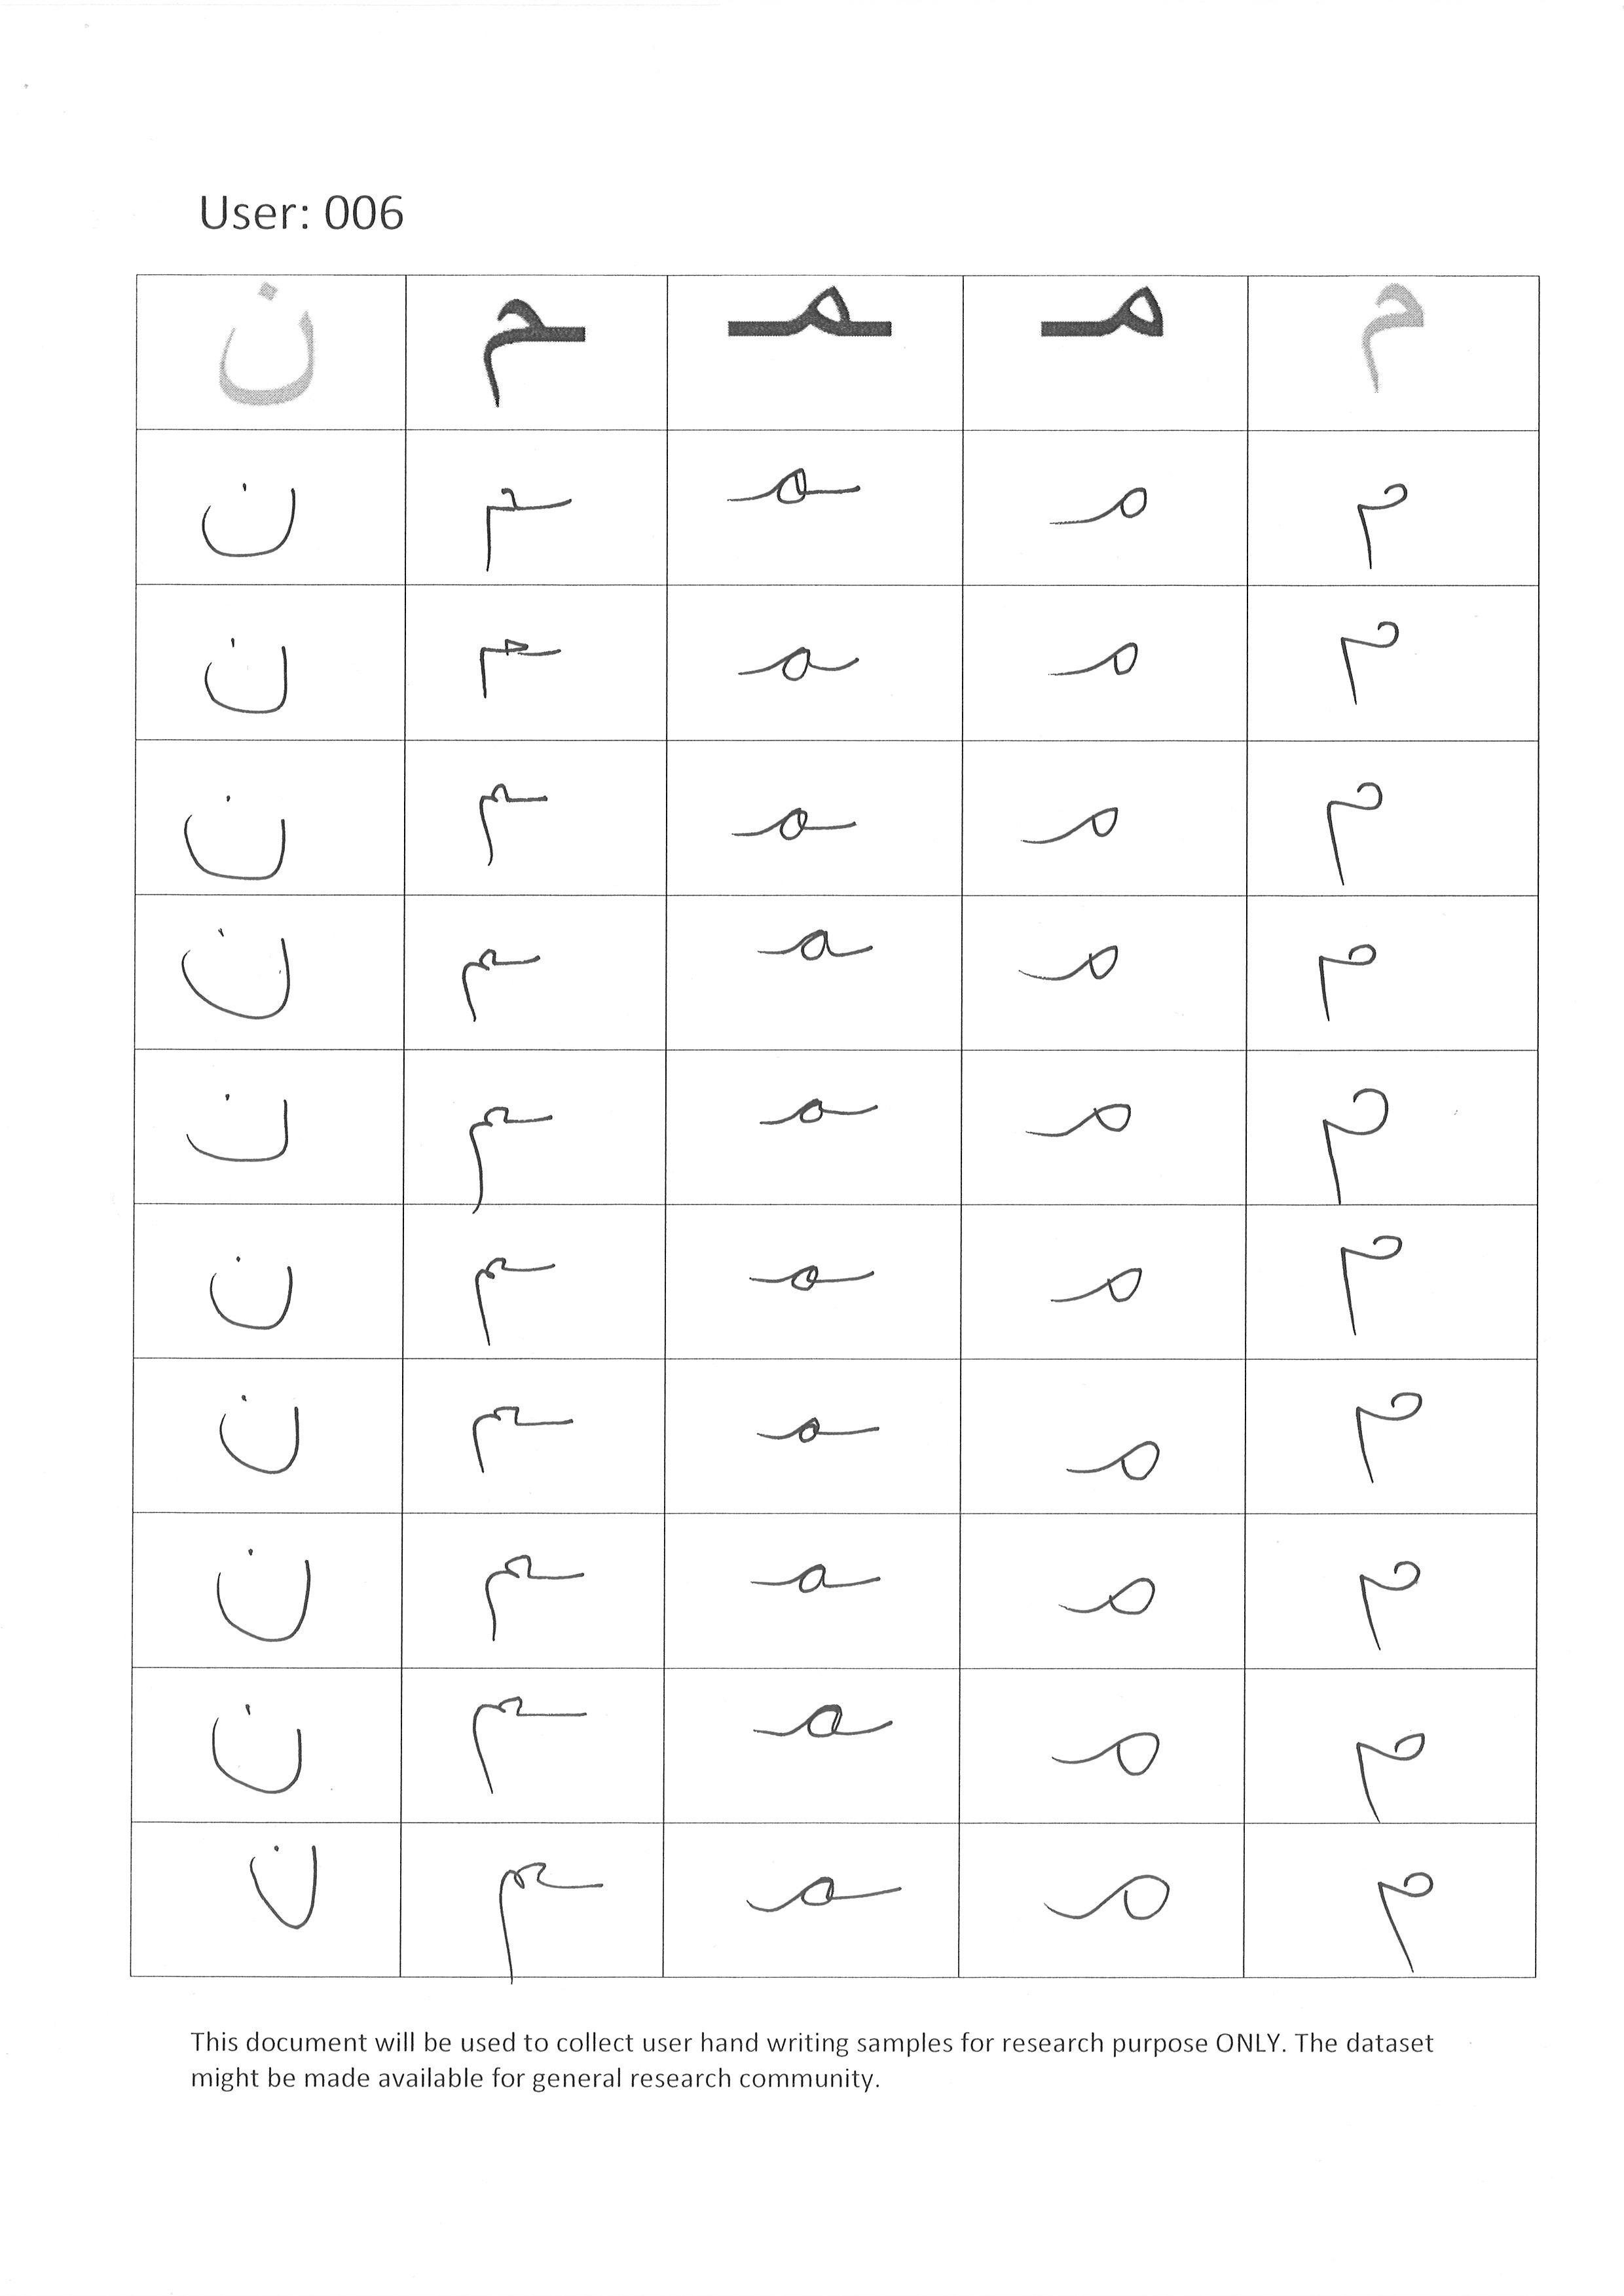 User: 006
م مـ ـمـ ـم ن
م مـ ـمـ ـم ن
م مـ ـمـ ـم ن
م مـ ـمـ ـم ن
م مـ ـمـ ـم ن
م مـ ـمـ ـم ن
م مـ ـمـ ـم ن
م مـ ـمـ ـم ن
م مـ ـمـ ـم ن
م مـ ـمـ ـم ن
م مـ ـمـ ـم ن
This document will be used to collect user hand writing samples for research purpose ONLY. The dataset
might be made available for general research community.